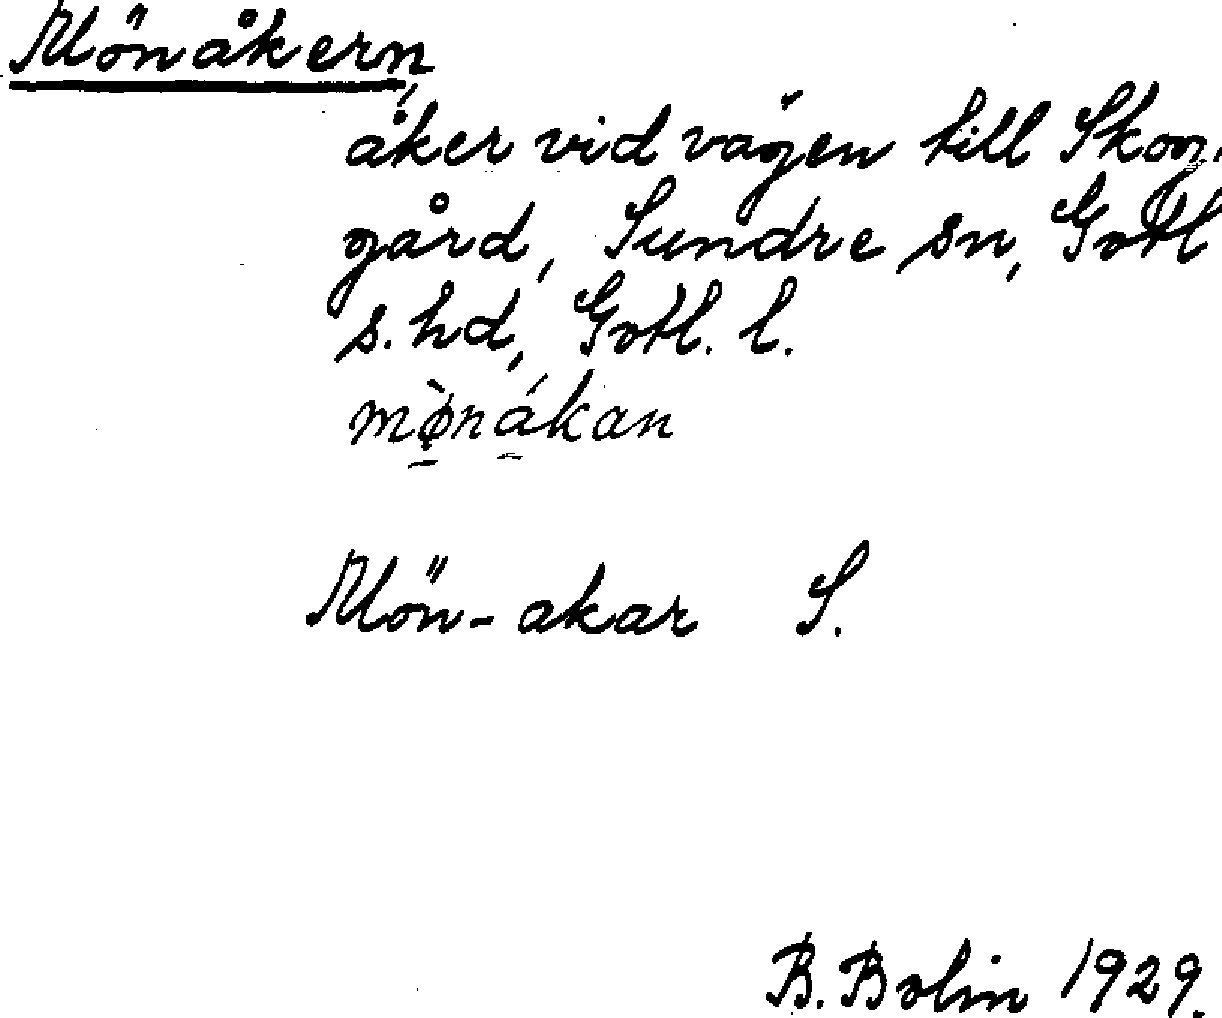 Mönåkern,
åker vid vägen till Skog-
gård, Sundre sn, Gotl
s. hd, Gotl. l.
mø̀nákan
Mön-akar S.
B. Bolin 1929.